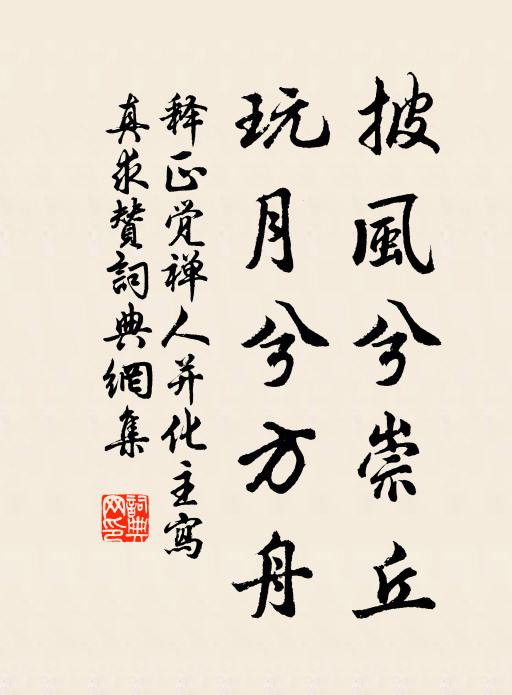 披風兮崇丘
玩月兮方舟
释正觉禅人并化主寫
真求赞詞典網集
詞典
网印